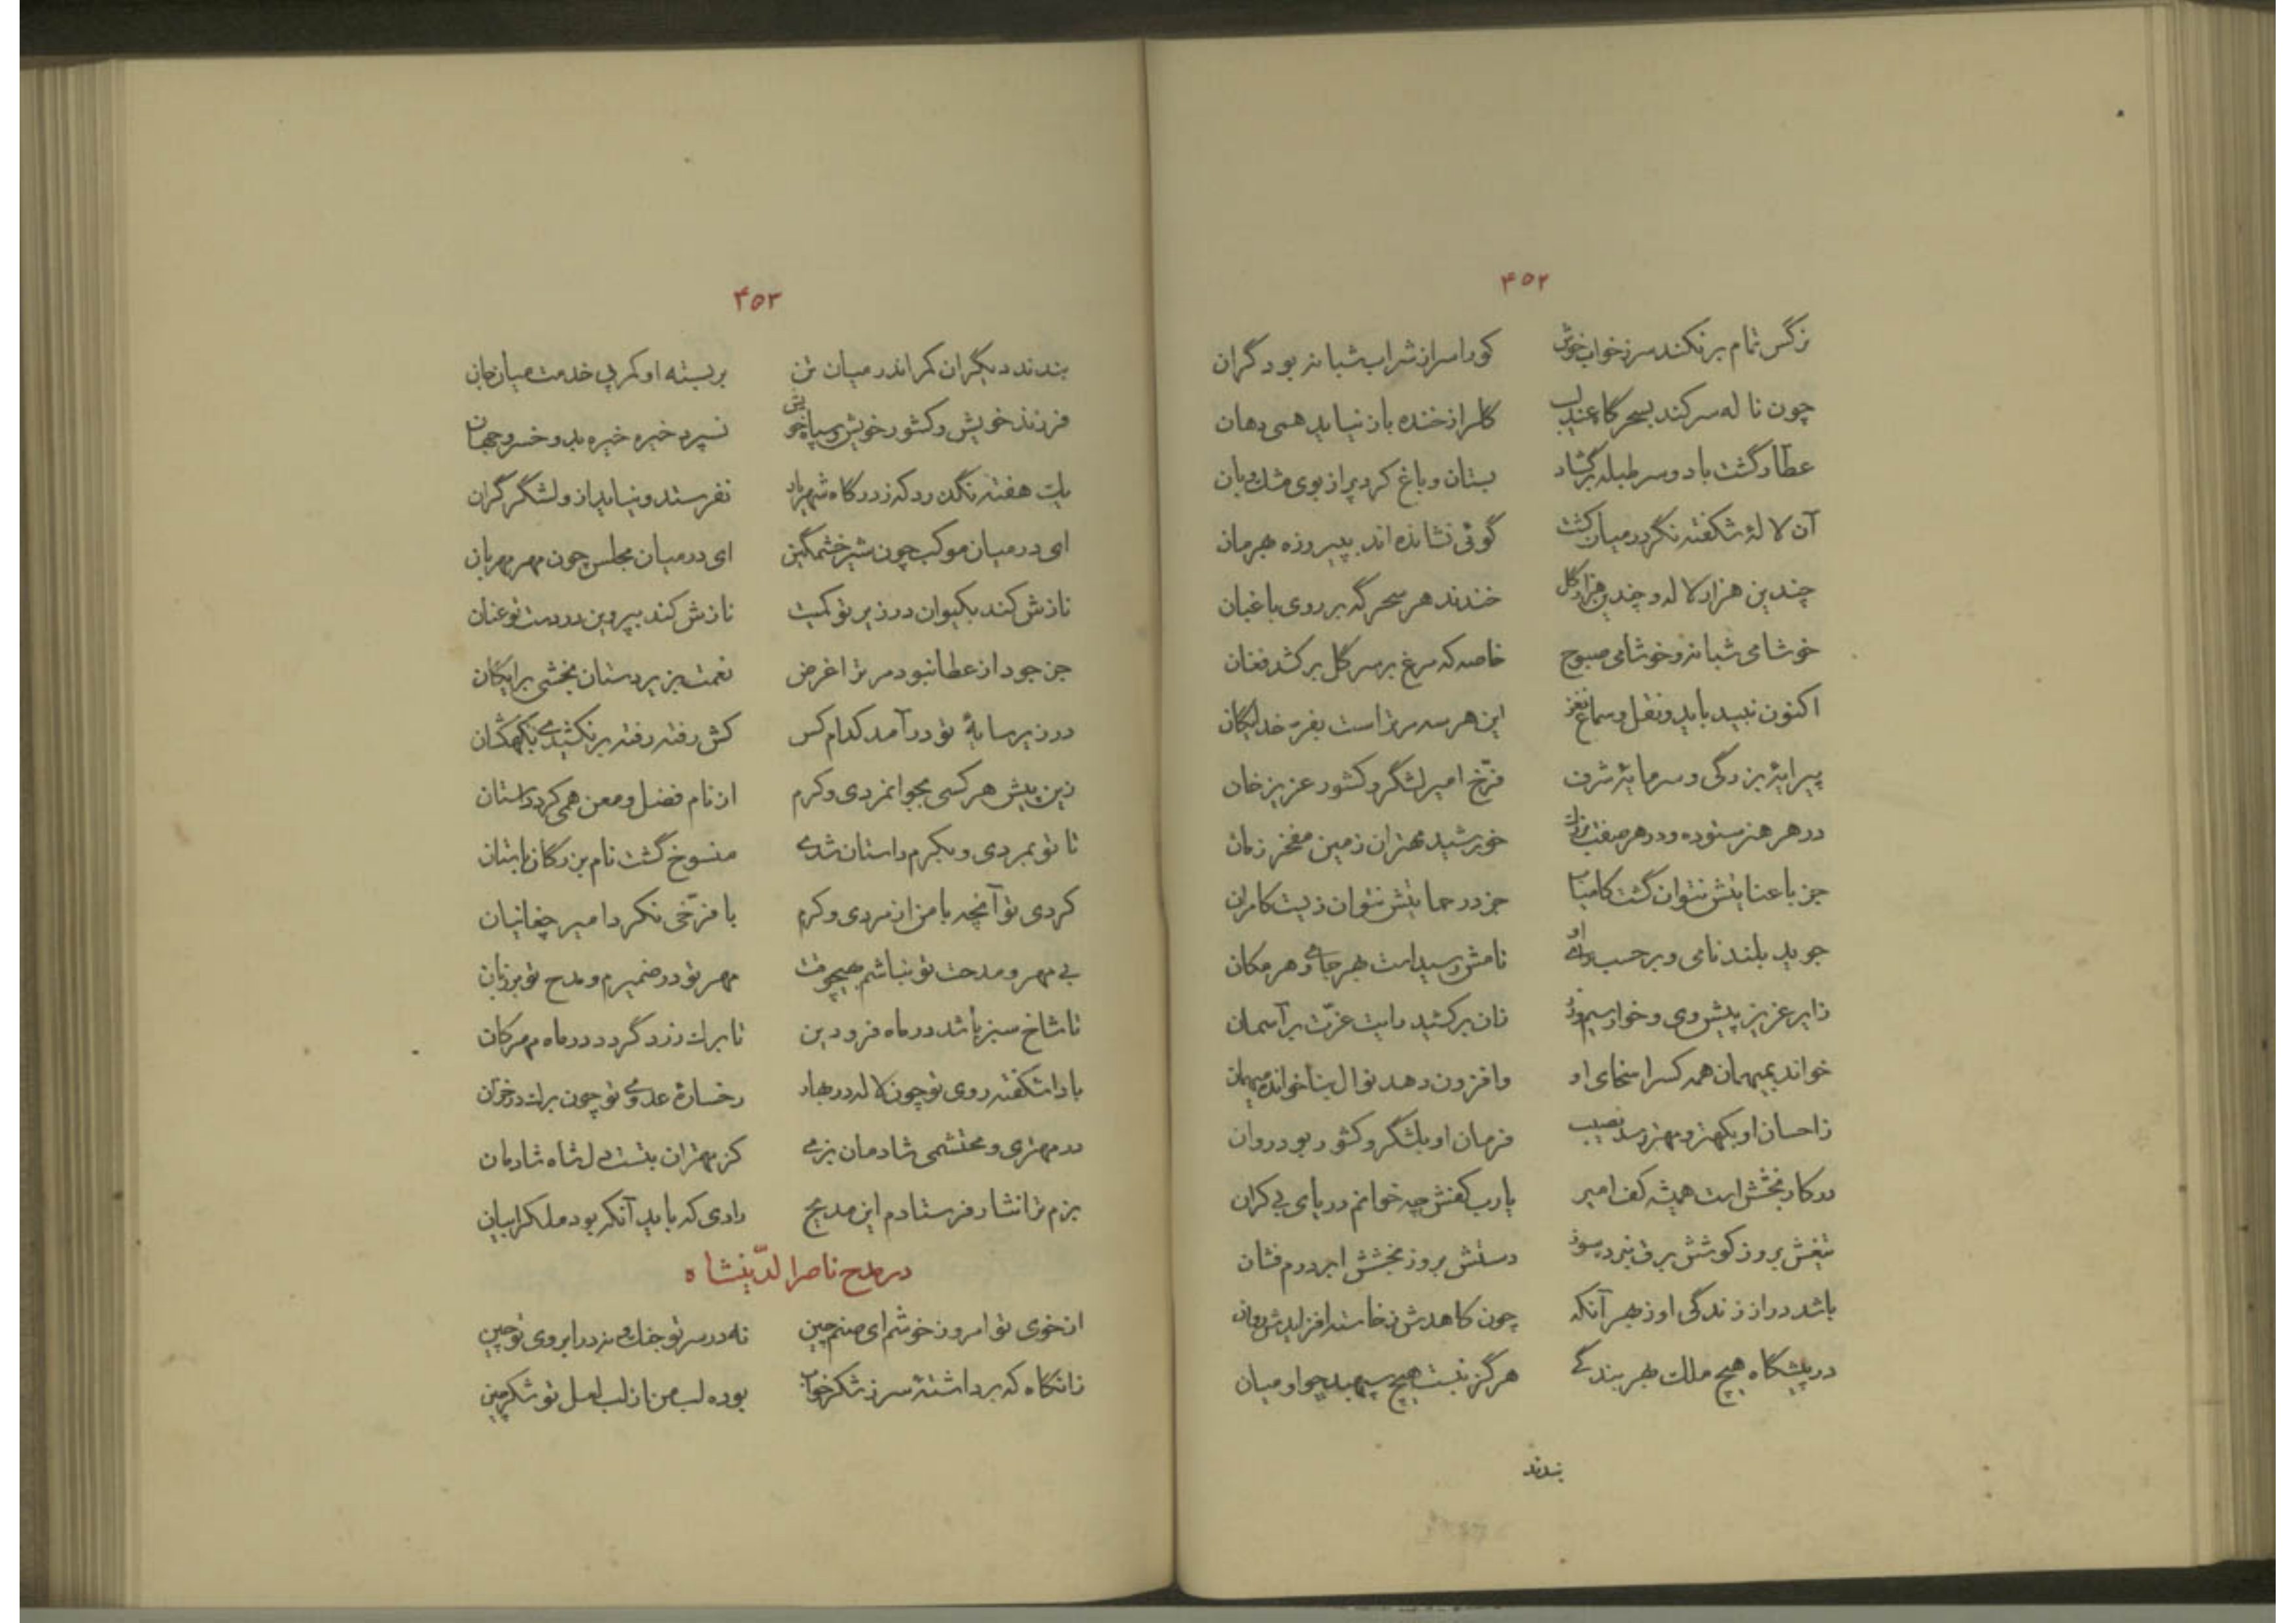 ۴۵۲
نرگس تمام برنکند سر ز خواب خوش کورا سر از شراب شبانه بود گران
چون ناله سر کند بسحرگاه عندلیب گلرا ز خنده باز نیاید همی دهان
عطار گشت باد و سر طبله برگشاد بستان و باغ کرد پر از بوی مشک و بان
آن لالهٔ شکفته نگر در میان کشت گوئی نشانده‌اند به پیروزه بهرمان
چندین هزار لاله و چندین هزار گل خندند هر سحرگه بر روی باغبان
خوشا می شبانه و خوشا می صبوح خاصه که مرغ بر سر گل برکشد فغان
اکنون نبید باید و نقل و سماع نغز این هر سه مر تراست بفر خدایگان
پیرایهٔ بزرگی و سرمایهٔ شرف فرّخ امیر لشگر و کشور عزیز خان
در هر هنر ستوده و در هر صفت بزرگ خورشید مهتران زمین مفخر زمان
جز با عنایتش نتوان گشت کامیاب جز در حمایتش نتوان زیست کامران
جوید بلند نامی و بر حسب رای او نامش رسیده است بهر جای و هر مکان
زایر عزیز پیش وی و خوار سیم و زر زان برکشید رایت عزّت بر آسمان
خواند بمیهمان همه کسرا سخای او وافزون دهد نوال بناخوانده میهمان
ز احسان او بکهتر و مهتر رسد نصیب فرمان او بلشگر و کشور بود روان
در کار بخشش است همیشه کف امیر یارب کفش چه خوانم دریای بی‌کران
تیغش بروز کوشش برق نبرد سوز دستش بروز بخشش ابر درم فشان
باشد دراز زندگی او ز بهر آنکه چون کاهدش ز خاسته افزایدش روان
در پیشگاه هیچ ملک بهر بندگی هرگز نبست هیچ سپهبد چو او میان
بندند
۴۵۳
بندند دیگران کمر اندر میان تن بر بسته او کمر پی خدمت میان جان
فرزند خویش و کشور خویش و سپاه خویش نسپرد خیره خیره بدو خسرو جهان
یک هفته نگذرد که ز درگاه شهریار نفرستد و نیاید از و لشگر گران
ای در میان موکب چون شیر خشمگین ای در میان مجلس چون مهر مهربان
نازش کند بکیوان در زیر تو کمیت نازش کند بپروین در دست تو عنان
جز جود از عطا نبود مر ترا غرض نعمت بزیردستان بخشی برایگان
در زیر سایهٔ تو در آمد کدام کس کش رفته رفته برنکشیدی بکهکشان
زین پیش هر کسی بجوانمردی و کرم از نام فضل و معن همی کرد داستان
تا تو بمردی و بکرم داستان شدی منسوخ گشت نام بزرگان باستان
کردی تو آنچه با من از مردی و کرم با فرّخی نکرد امیر چغانیان
بی مهر و مدحت تو نباشم هیچوقت مهر تو در ضمیرم و مدح تو بر زبان
تا شاخ سبز باشد در ماه فرودین تا برک زرد گردد در ماه مهرکان
بادا شکفته روی تو چون لاله در بهار رخسارهٔ عدوی تو چون برک در خزان
در مهتری و محتشمی شادمان بزی کز مهتران بتست دل شاه شادمان
بزم ترا نثار فرستادم این مدیح رادی که باید آنکه بود ملک را بیان
در مدح ناصرالدّینشاه
از خوی تو امروز خوشم ای صنم چین نه در سر تو جنک و نه در ابروی تو چین
زانگاه که برداشتهٔ سر ز شکرخواب بوده لب من از لب لعل تو شکرچین